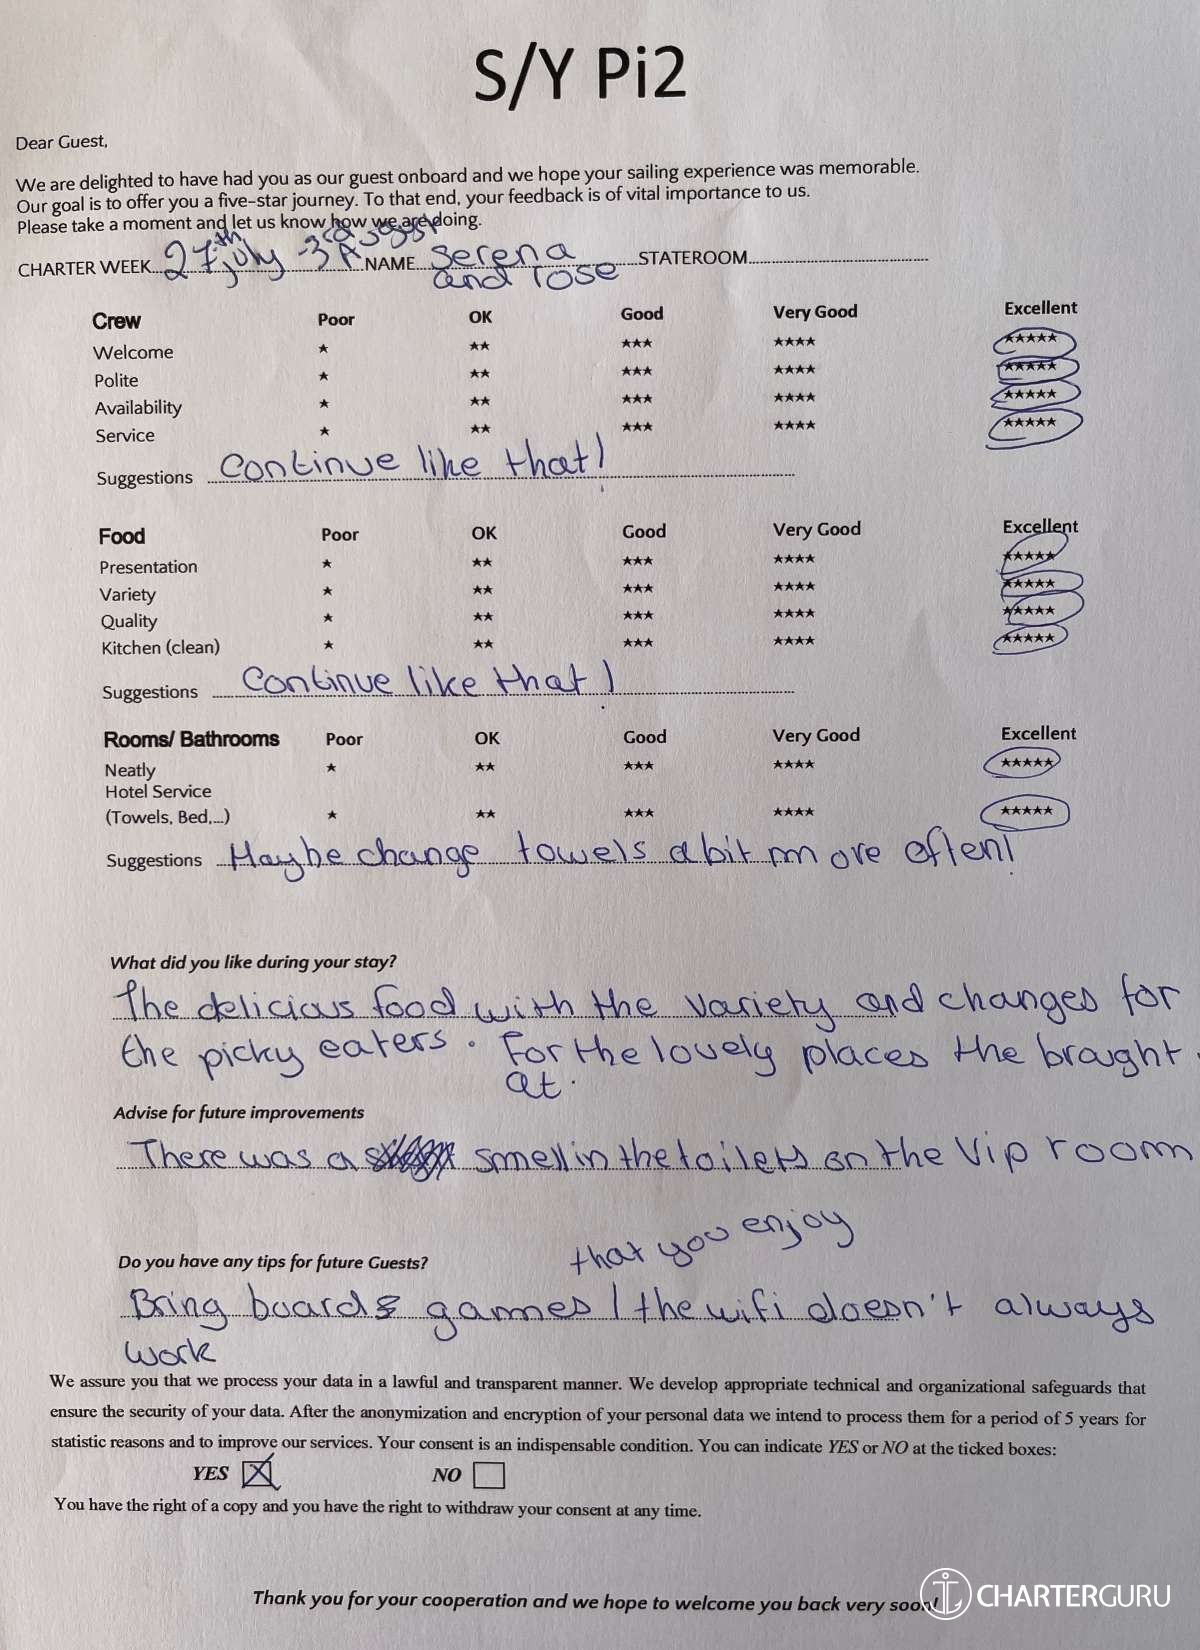 S/Y Pi2
Dear Guest,
We are delighted to have had you as our guest onboard and we hope your sailing experience was memorable.
Our goal is to offer you a five-star journey. To that end, your feedback is of vital importance to us.
Please take a moment and let us know how we are doing.
CHARTER WEEK 27th july - 3rd August NAME Serena and rose STATEROOM
Crew Poor OK Good Very Good Excellent
Welcome ★ ★★ ★★★ ★★★★ ★★★★★
Polite ★ ★★ ★★★ ★★★★ ★★★★★
Availability ★ ★★ ★★★ ★★★★ ★★★★★
Service ★ ★★ ★★★ ★★★★ ★★★★★
Suggestions Continue like that!
Food Poor OK Good Very Good Excellent
Presentation ★ ★★ ★★★ ★★★★ ★★★★★
Variety ★ ★★ ★★★ ★★★★ ★★★★★
Quality ★ ★★ ★★★ ★★★★ ★★★★★
Kitchen (clean) ★ ★★ ★★★ ★★★★ ★★★★★
Suggestions Continue like that!
Rooms/ Bathrooms Poor OK Good Very Good Excellent
Neatly ★ ★★ ★★★ ★★★★ ★★★★★
Hotel Service
(Towels, Bed,...) ★ ★★ ★★★ ★★★★ ★★★★★
Suggestions Maybe change towels a bit more often!
What did you like during your stay?
The delicious food with the variety and changes for
the picky eaters. For the lovely places the braught
at.
Advise for future improvements
There was a smell in the toilets on the Vip room
Do you have any tips for future Guests?
that you enjoy
Bring boards games / the wifi doesn't always
work
We assure you that we process your data in a lawful and transparent manner. We develop appropriate technical and organizational safeguards that
ensure the security of your data. After the anonymization and encryption of your personal data we intend to process them for a period of 5 years for
statistic reasons and to improve our services. Your consent is an indispensable condition. You can indicate YES or NO at the ticked boxes:
YES X NO
You have the right of a copy and you have the right to withdraw your consent at any time.
Thank you for your cooperation and we hope to welcome you back very soon!
CHARTERGURU